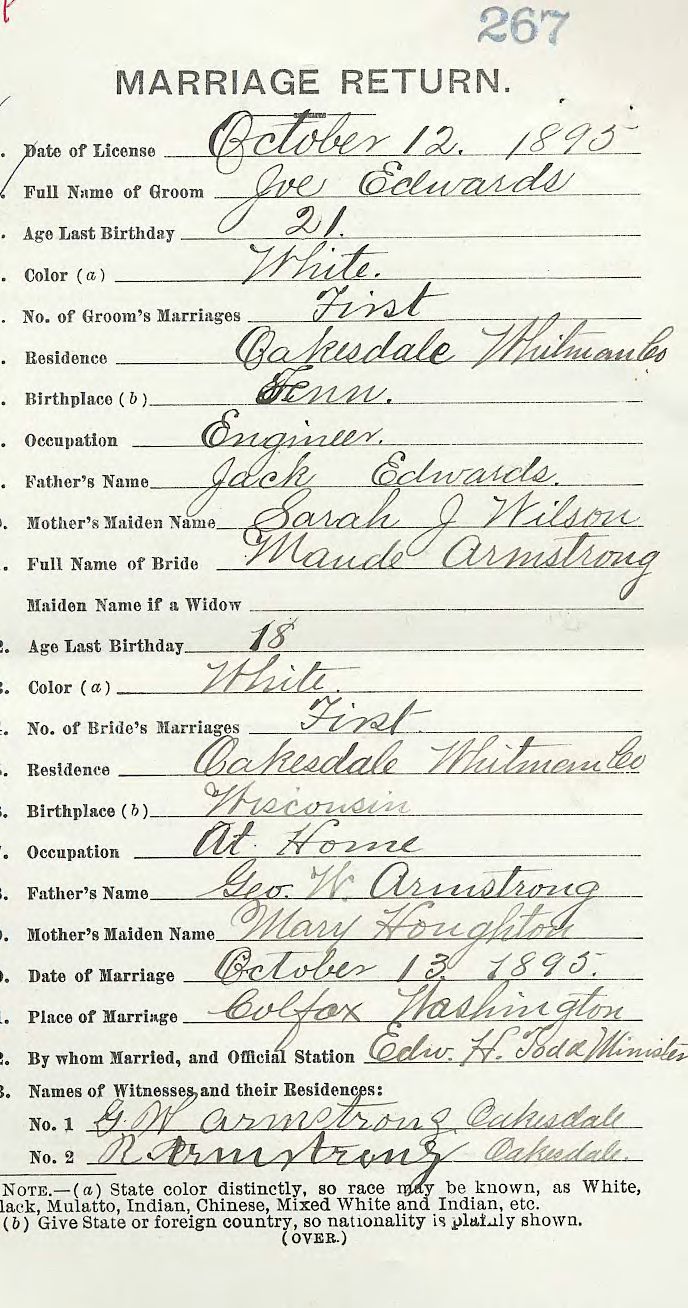 267
MARRIAGE RETURN.
. Date of License October 12. 1895
. Full Name of Groom Joe Edwards
. Age Last Birthday 21.
. Color (a) White.
. No. of Groom's Marriages First
. Residence Oakesdale Whitman Co
. Birthplace (b) Tenn.
. Occupation Engineer.
. Father's Name Jack Edwards.
. Mother's Maiden Name Sarah J Wilson
. Full Name of Bride Maude Armstrong
Maiden Name if a Widow
2. Age Last Birthday 18
3. Color (a) White.
. No. of Bride's Marriages First.
5. Residence Oakesdale Whitman Co
6. Birthplace (b) Wisconsin
7. Occupation At Home
8. Father's Name Geo. W. Armstrong
9. Mother's Maiden Name Mary Houghton
0. Date of Marriage October 13. 1895.
1. Place of Marriage Colfax Washington
2. By whom Married, and Official Station Edw. H. Todd Minister
3. Names of Witnesses and their Residences:
No. 1 G W Armstrong Oakesdale
No. 2 R Armstrong Oakesdale.
NOTE.—(a) State color distinctly, so race may be known, as White,
lack, Mulatto, Indian, Chinese, Mixed White and Indian, etc.
(b) Give State or foreign country, so nationality is plainly shown.
(OVER.)